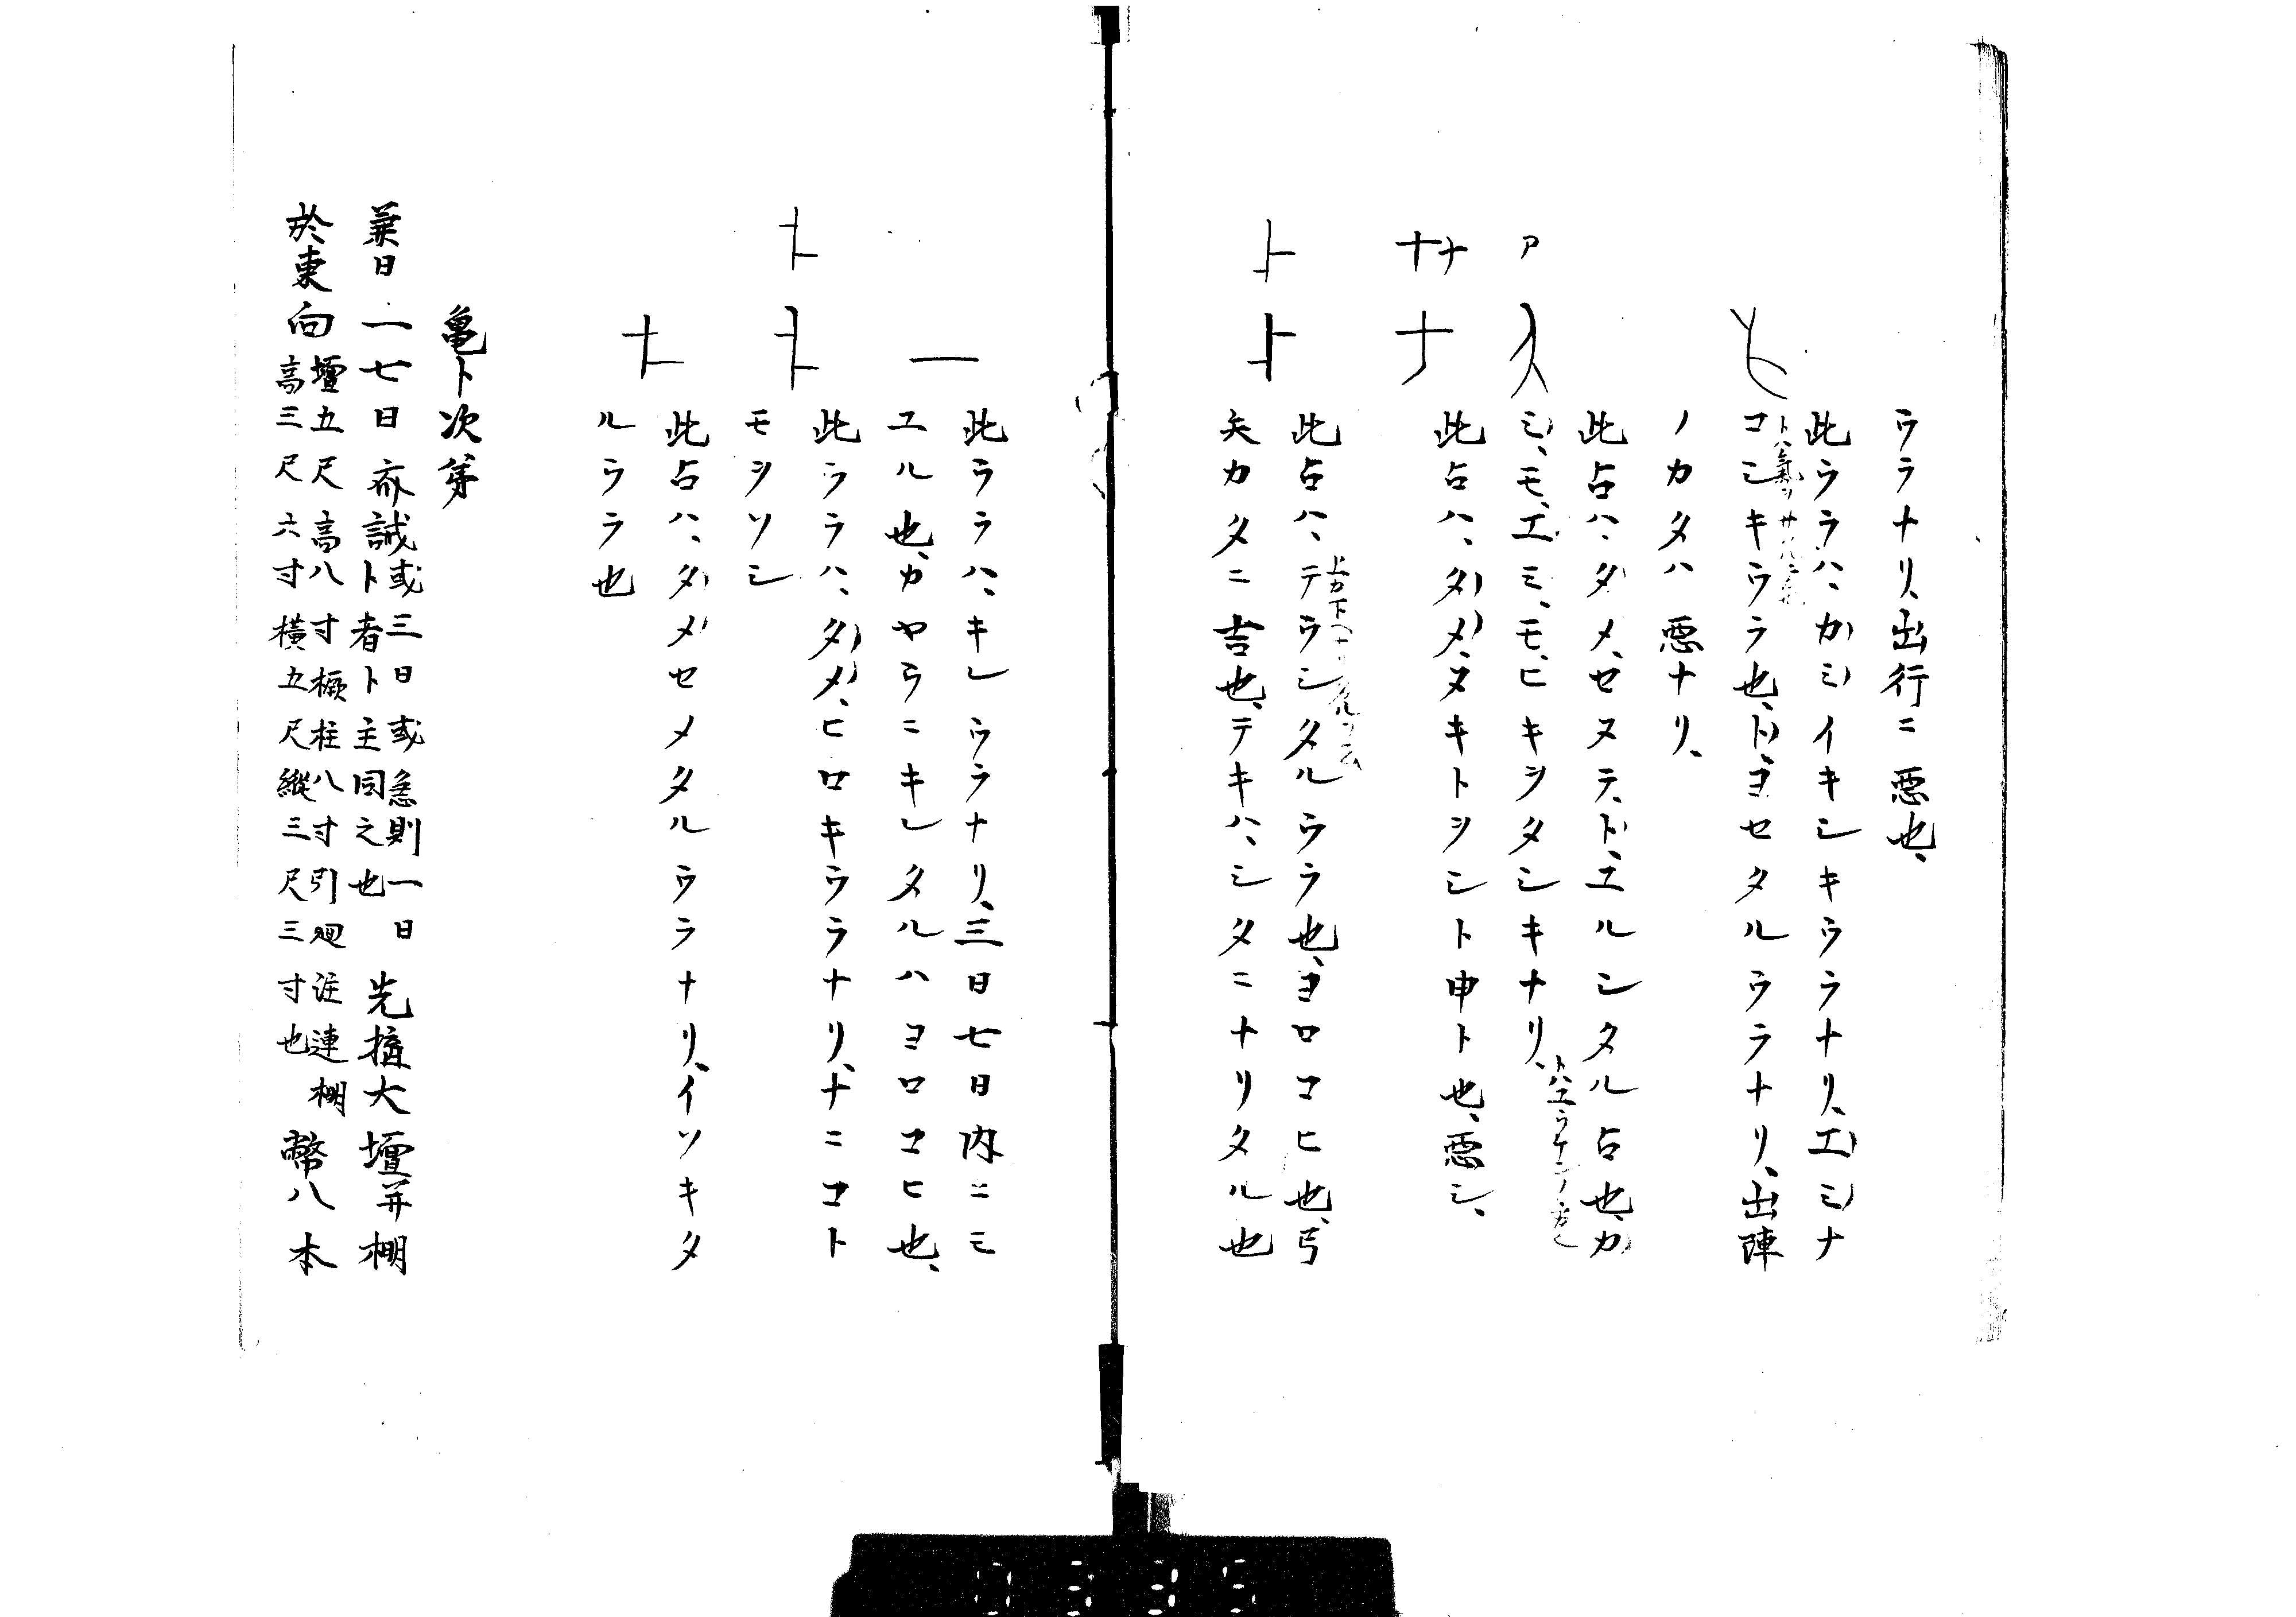 ウラナリ、出行ニ悪也、
此ウラハ、カミイキシキウラナリ、エミナ
コシキウラ也、ト、ヨセタルウラナリ、出陣
ノカタハ悪ナリ、
此占ハ、タメ、セヌテ、ト、エルシタル占也、カ
ミ、モ、エミ、モ、ヒキヲタシキナリ、
此占ハ、タメ、ヌキトヲシト申ト也、悪シ、
此占ハ、テラシタルウラ也、ヨロコヒ也、弓
矢カタニ吉也、テキハ、シタニナリタル也
此ウラハ、キレウラナリ、三日七日内ニモ
ユル也、カヤウニキレタルハヨロコヒ也、
此ウラハ、タメ、ヒロキウラナリ、ナニコト
モヲソシ
此占ハ、タメセメタルウラナリ、イソキタ
ルウラ也
亀卜次第
兼日一七日斎誡或三日或急則一日
卜者卜主同之也
先搆大壇并棚
於東向壇五尺高八寸橛柱八寸引廻注連棚
高三尺六寸横五尺縦三尺三寸也
幣八本